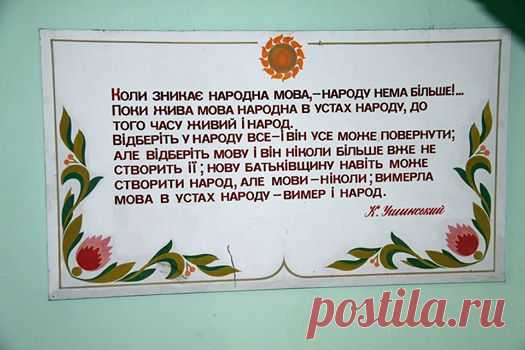 Коли зникає народна мова,–народу нема більше!...
Поки жива мова народна в устах народу, до
того часу живий і народ.
Відберіть у народу все–і він усе може повернути;
але відберіть мову і він ніколи більше вже не
створить її; нову батьківщину навіть може
створити народ, але мови–ніколи; вимерла
мова в устах народу–вимер і народ.
К. Ушинський
postila.ru